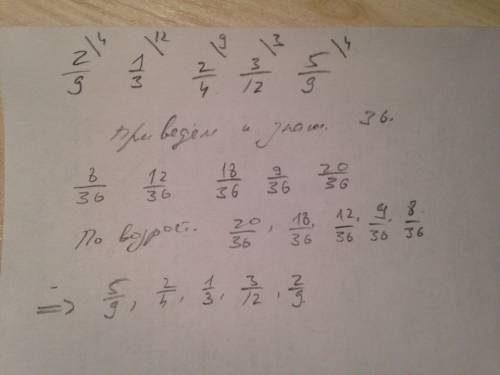 2/9 \4 1/3 \12 2/4 \9 3/12 \3 5/9 \4
Приведем к знам. 36.
8/36 12/36 18/36 9/36 20/36
По возрост. 20/36, 18/36, 12/36, 9/36, 8/36
=> 5/9, 2/4, 1/3, 3/12, 2/9